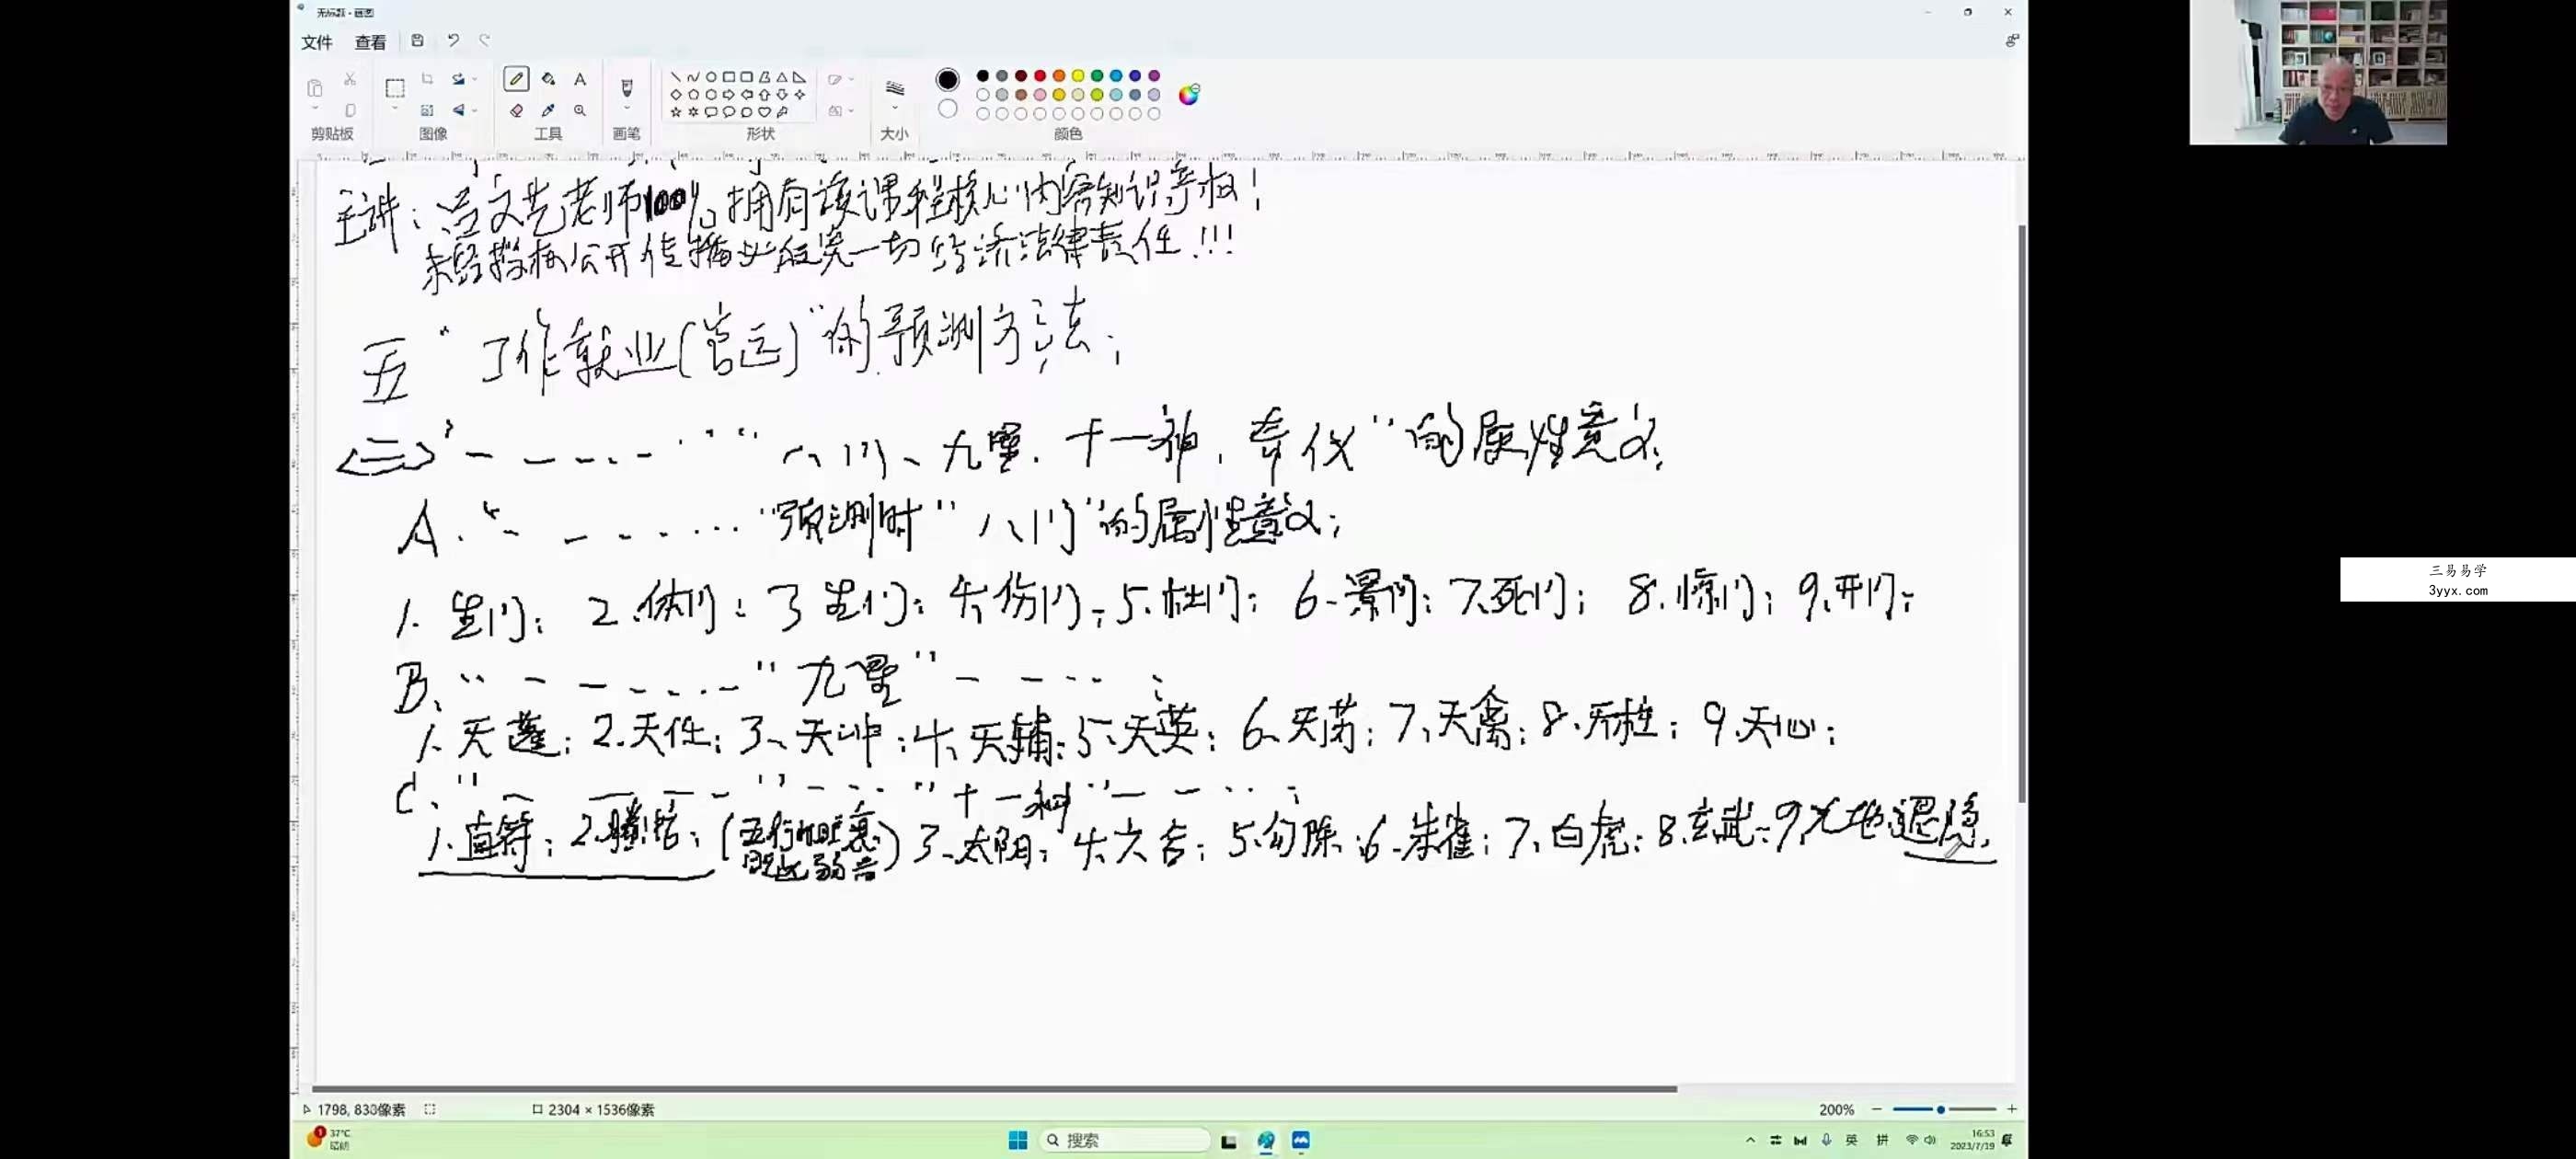 无标题 - 画图
文件 查看
剪贴板 图像 工具 画笔 形状 大小 颜色
主讲：吕文艺老师100%拥有该课程核心内容知识产权！
未经授权公开传播必追究一切经济法律责任！！！
五“工作就业(官运)”的预测方法；
<三>“— — - - - ”“八门、九星、十一神、奇仪”的属性意义；
A.“- — - - - … ”预测时“八门”的属性意义；
1. 生门； 2.休门； 3 生门； 4、伤门； 5.杜门； 6.景门； 7.死门； 8.惊门； 9.开门；
B、“- — - - - -”九星”— — - - ；
1.天蓬；2.天任；3、天冲；4、天辅；5、天英；6、天芮；7、天禽；8、天柱；9.天心；
C、“— — — -”- - - “十一神”— — - - ；
1.直符；2.螣蛇；(五行旺衰) 3.太阴；4.六合；5.勾陈；6.朱雀；7、白虎；8.玄武；9.九地 退隐.
三易易学
3yyx.com
1798, 830像素
2304 × 1536像素
200%
37°C
晴朗
搜索
英 拼
16:53
2023/7/19